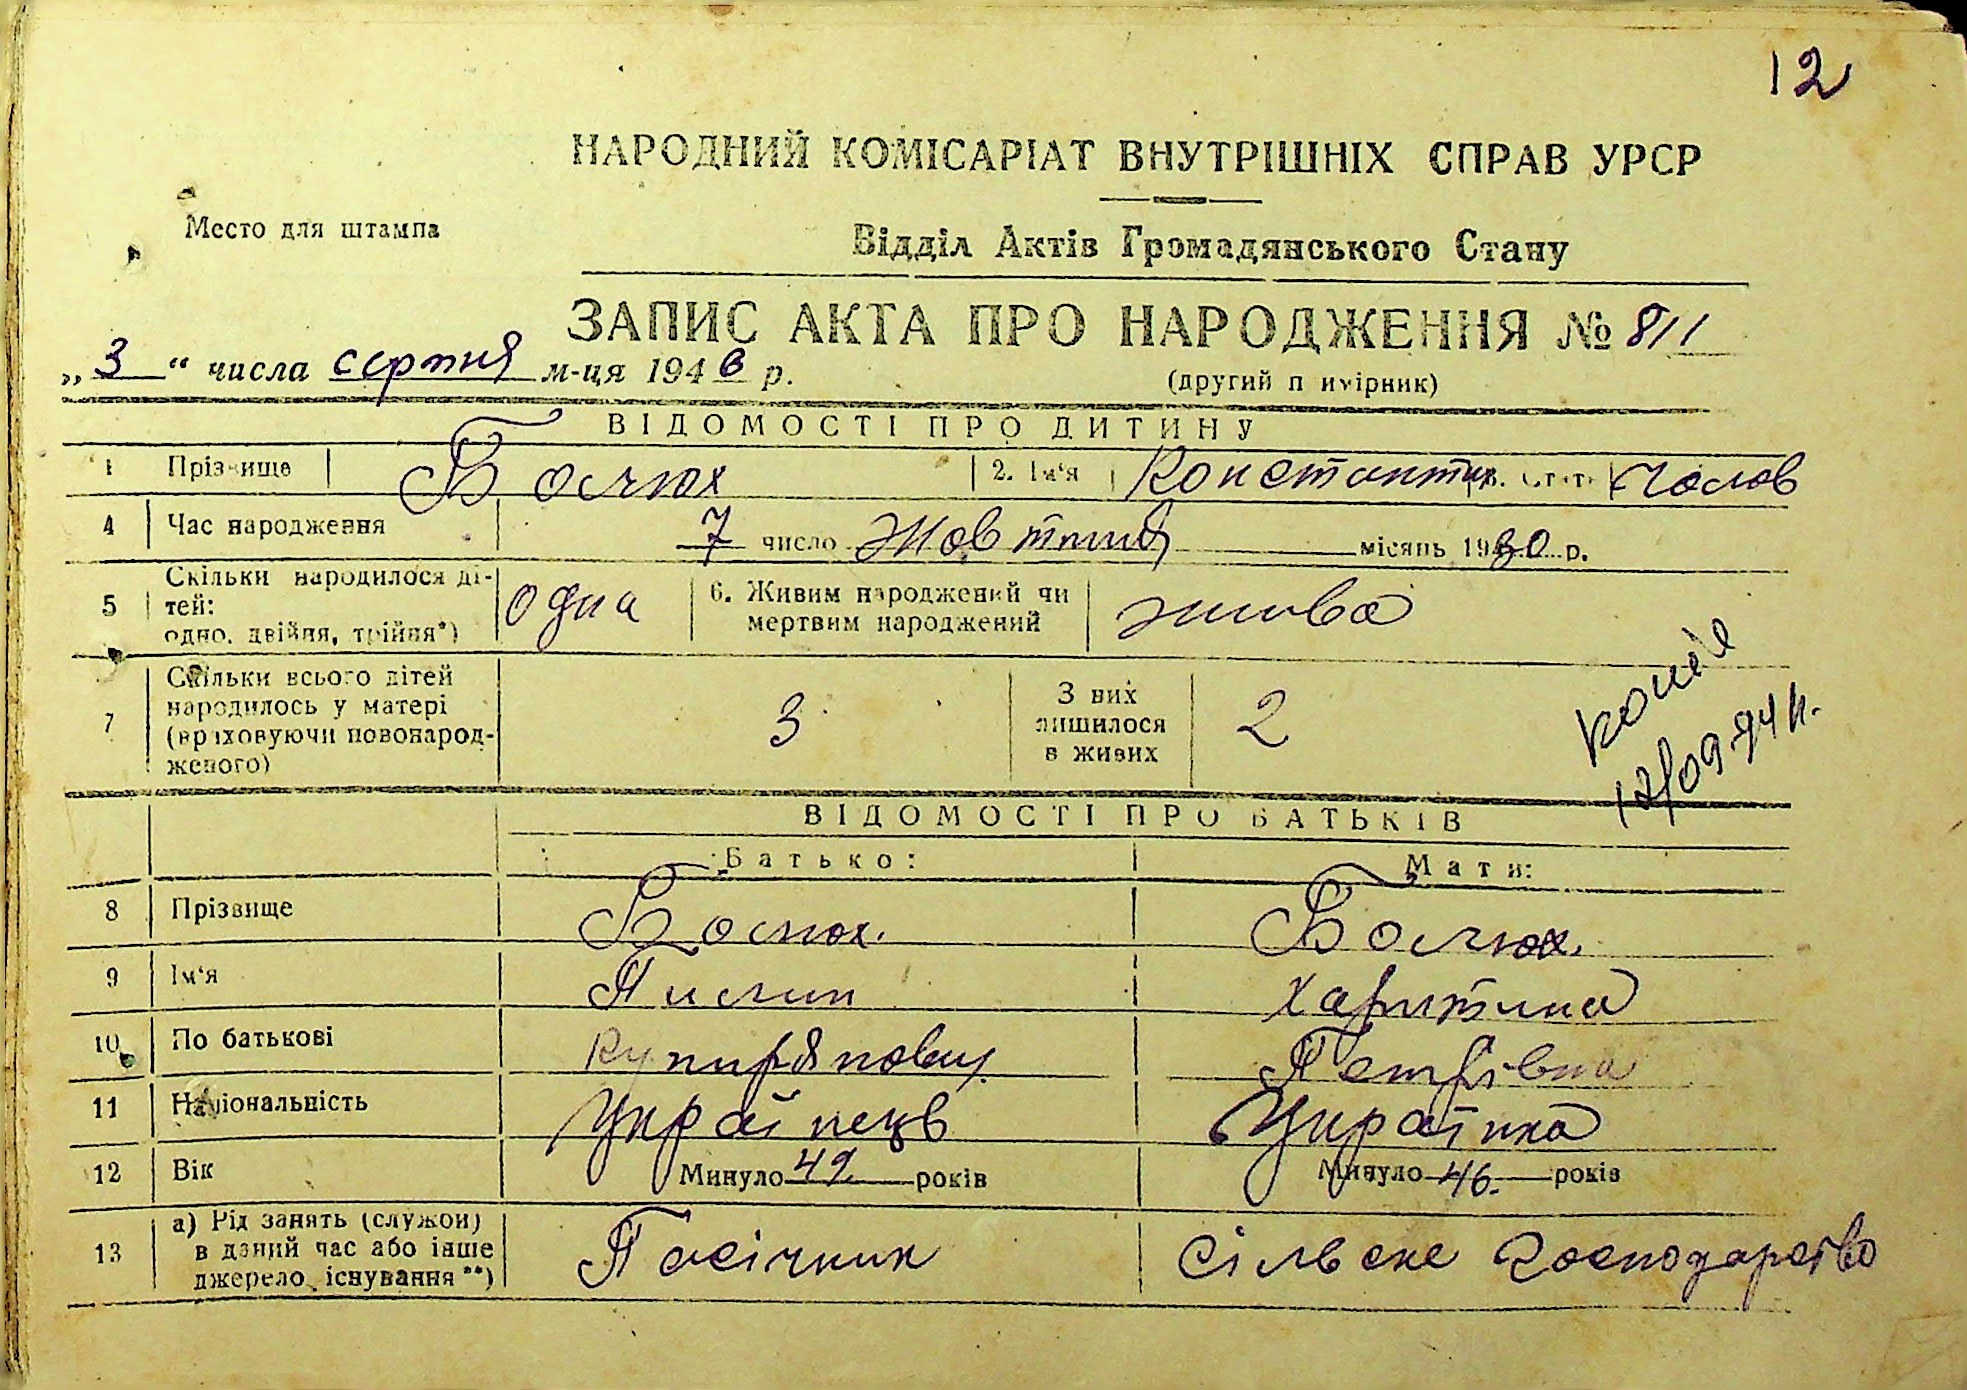 12
НАРОДНИЙ КОМІСАРІАТ ВНУТРІШНІХ СПРАВ УРСР
Место для штампа
Відділ Актів Громадянського Стану
ЗАПИС АКТА ПРО НАРОДЖЕННЯ № 811
„3“ числа серпня м-ця 1946 р.
(другий п имірник)
ВІДОМОСТІ ПРО ДИТИНУ
1 Прізвище 2. Ім'я Константин Чолов
4 Час народження 7 число Жовтня місяць 1930 р.
5 Скільки народилося ді-
тей:
одно, двійня, трійня*) одна 6. Живим народжений чи
мертвим народжений жива
7 Скільки всього дітей
народилось у матері
(враховуючи новонарод-
женого) 3 З них
лишилося
в живих 2
копія
12/09-94
ВІДОМОСТІ ПРО БАТЬКІВ
Батько: Мати:
8 Прізвище
9 Ім'я Харитина
10 По батькові Петрівна
11 Національність Українець Українка
12 Вік Минуло 49. років Минуло 46. років
13 а) Рід занять (служби)
в даний час або інше
джерело існування**) Пасічник Сільське господарство